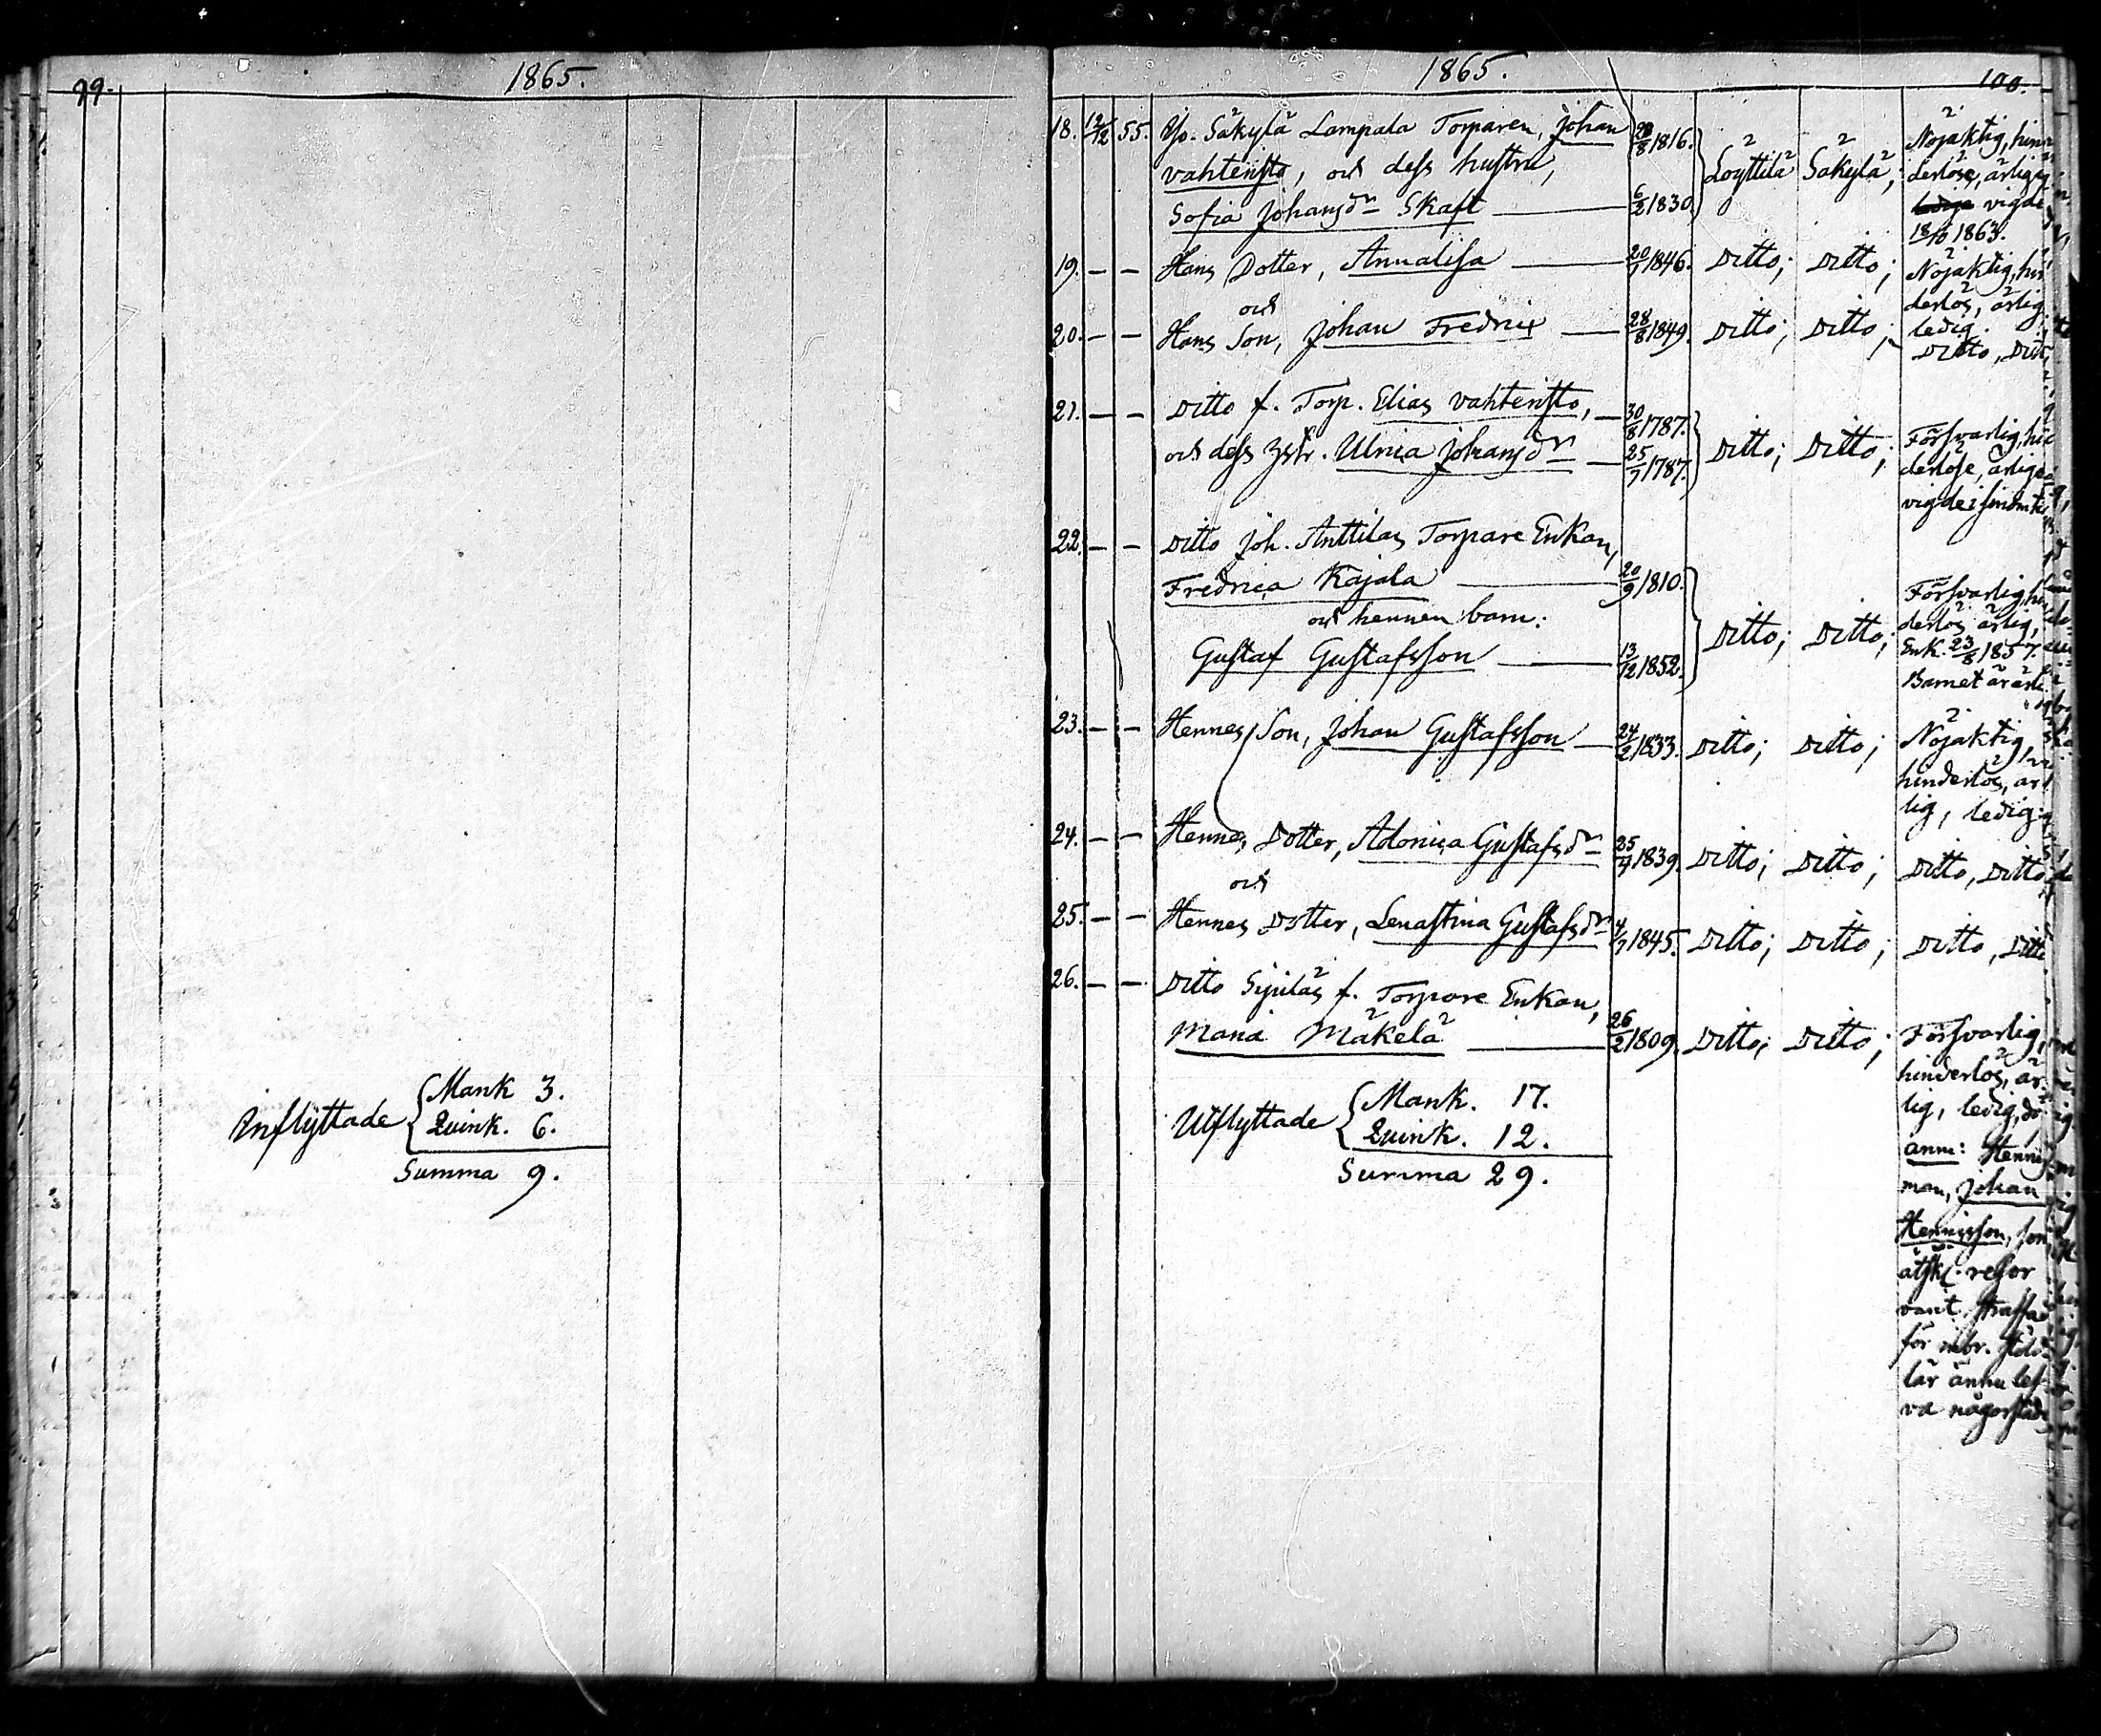 99.
1865.
Inflyttade
Mank 3.
Quink. 6.
Summa 9.
1865.
100.
18. 12/12 55. Yo. Säkylä Lampala Torparen, Johan 28/8 1816.
vahteristo, och dess hustru,
Sofia Johansdr Skaft 6/2 1830.
Löyttilä Säkylä;
Nöjaktig, hin
derlöse, ärlige
vigde
18/10 1863.
19. — — Hans Dotter, Annalisa — 20/1 1846. Ditto; Ditto;
Nöjaktig, hin
derlös, ärlig
ledig.
och
20. — — Hans Son, Johan Fredric — 28/8 1849. Ditto; Ditto;
Ditto, Ditt
21. — — Ditto f. Torp. Elias vahteristo, — 30/8 1787.
och dess Hstr. Ulrica Johansdr — 25/7 1787. Ditto; Ditto;
Försvarlig, hin
derlöse, ärlige
vigde
22. — — Ditto Joh. Anttilas Torpare Enkan,
Fredrica Kajala — 20/9 1810.
och hennes barn:
Gustaf Gustafsson — 13/12 1852. Ditto; Ditto;
Försvarlig, hin
derlös, ärlig,
Enk. 23/8 1857.
Barnet är
23. — — Hennes Son, Johan Gustafsson — 24/2 1833. Ditto; Ditto;
Nöjaktig,
hinderlös, är
lig, ledig.
24. — — Hennes Dotter, Adonica Gustafsdr 25/7 1839. Ditto; Ditto; Ditto, Ditto
och
25. — — Hennes Dotter, Lenastina Gustafsdr 4/7 1845. Ditto; Ditto; Ditto, Ditto
26. — — Ditto Sipiläs f. Torpare Enkan,
Maria Mäkelä — 26/2 1809. Ditto; Ditto;
Försvarlig,
hinderlös, är
lig, ledig,
anm: Hennes
man, Johan
Henrisson, som
åtsk. resor
varit straffad
för
lär ännu lef
va någorstäds
Utflyttade
Mank. 17.
Quink. 12.
Summa 29.